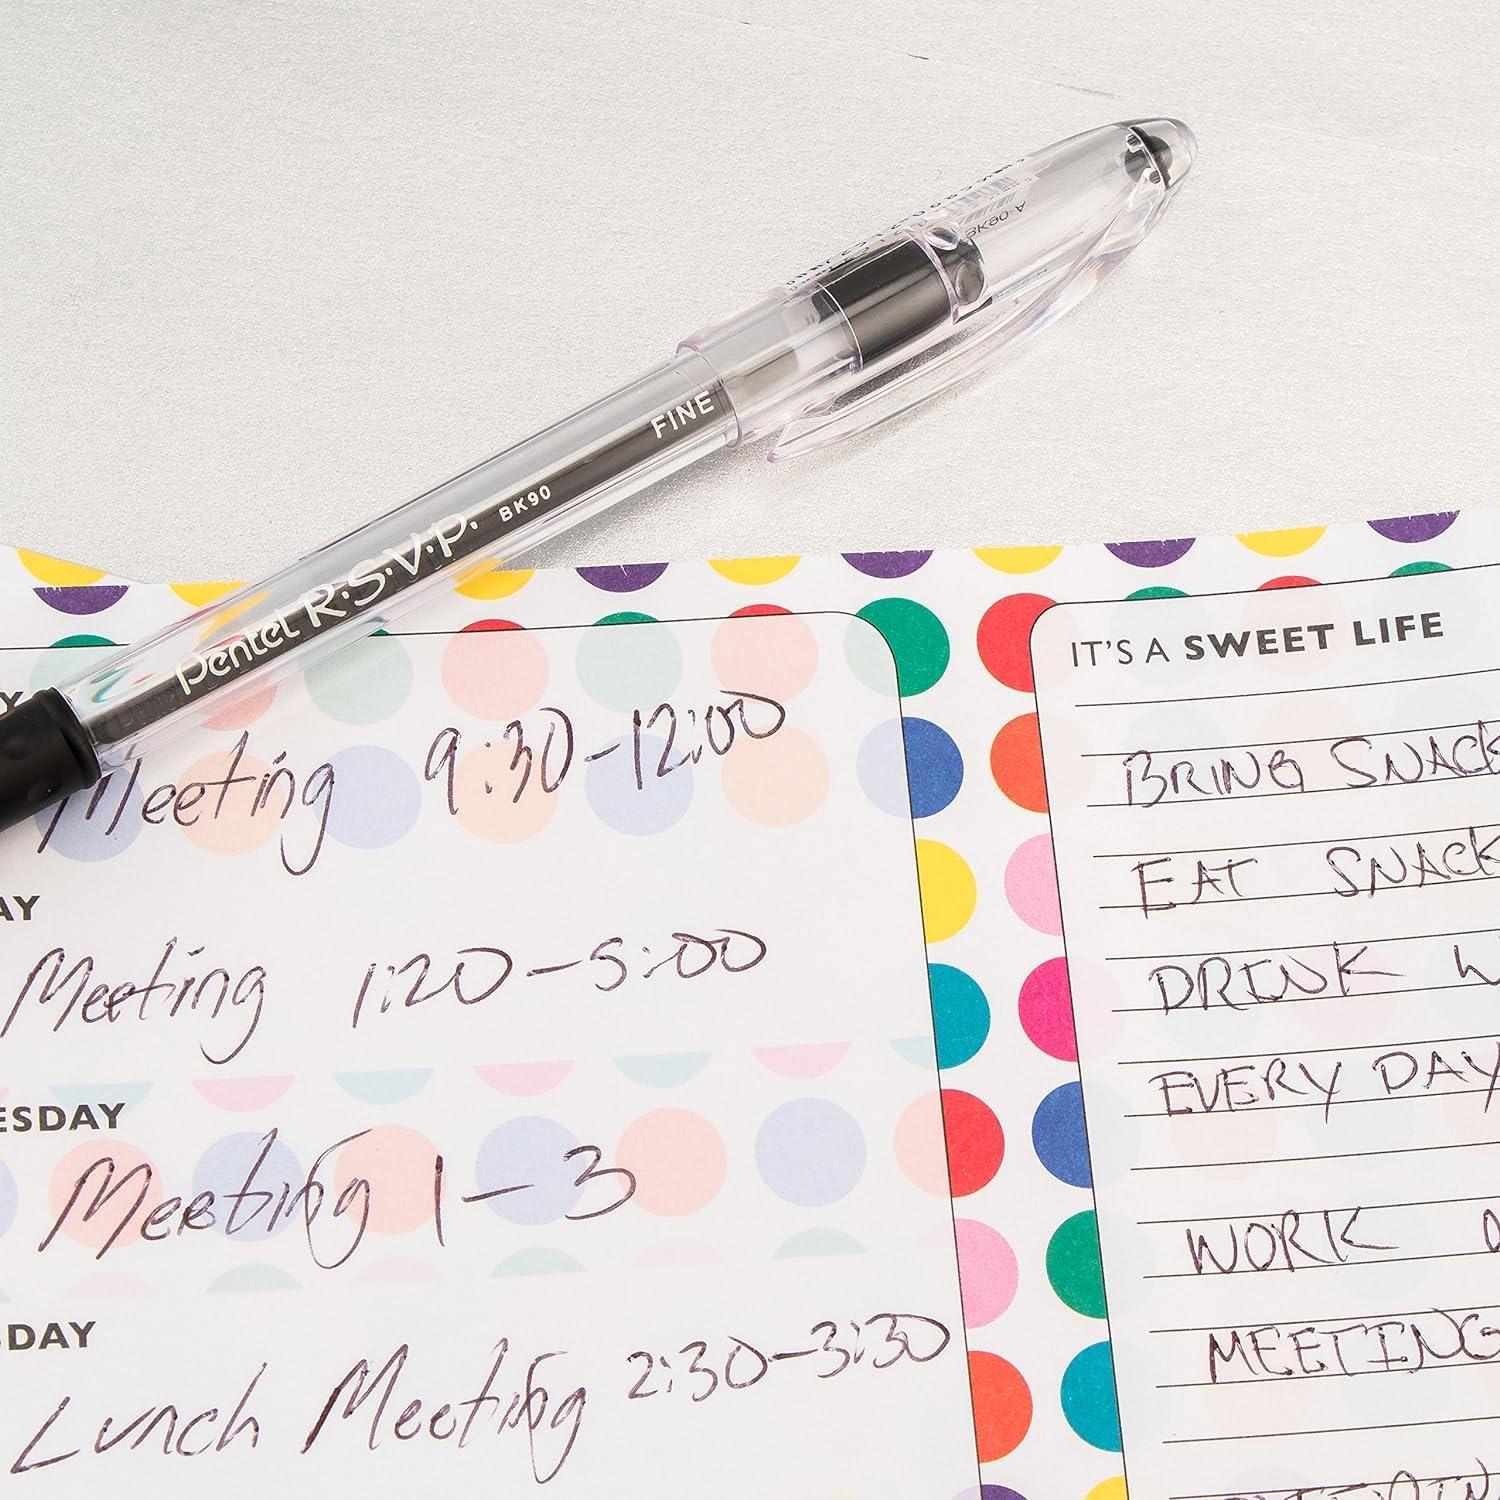 BK90-A
FINE
BK90
Pentel R·S·V·P.
IT'S A SWEET LIFE
Meeting 9:30-12:00
AY
Meeting 1:20-5:00
ESDAY
Meeting 1-3
SDAY
Lunch Meeting 2:30-3:30
BRING SNACK
EAT SNACK
DRINK W
EVERY DAY
WORK
MEETING